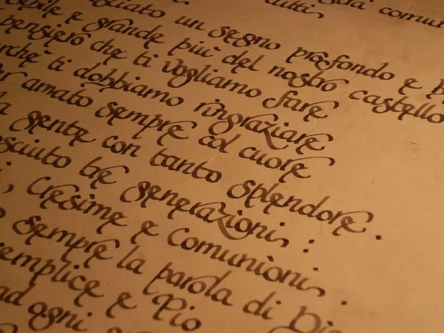 tutti
lasciato un segno profondo e
nobile e grande più del nostro castello
pensiero che ti vogliamo fare
perché ti dobbiamo ringraziare
amato sempre col cuore
gente con tanto splendore.
tre generazioni:
, cresime e comunioni.
sempre la parola di Dio
semplice e Pio
ad ogni